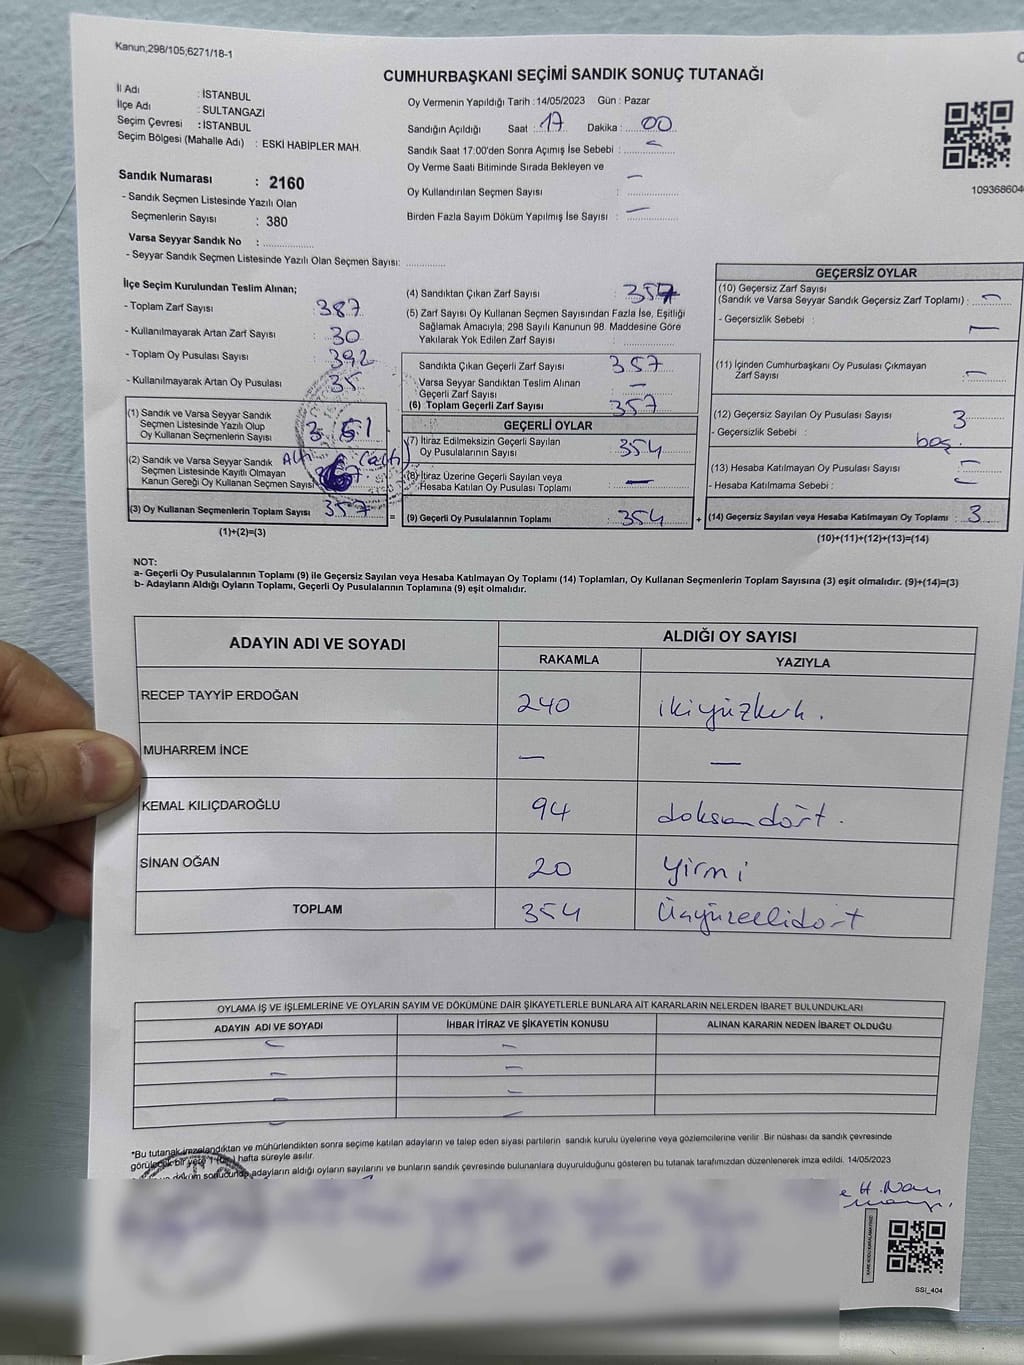 Kanun;298/105;6271/18-1
CUMHURBAŞKANI SEÇİMİ SANDIK SONUÇ TUTANAĞI
İl Adı : İSTANBUL
İlçe Adı : SULTANGAZİ
Seçim Çevresi : İSTANBUL
Seçim Bölgesi (Mahalle Adı) : ESKİ HABİPLER MAH.
Sandık Numarası : 2160
- Sandık Seçmen Listesinde Yazılı Olan
Seçmenlerin Sayısı : 380
Varsa Seyyar Sandık No :
- Seyyar Sandık Seçmen Listesinde Yazılı Olan Seçmen Sayısı:
Oy Vermenin Yapıldığı Tarih : 14/05/2023 Gün : Pazar
Sandığın Açıldığı Saat : 17 Dakika : 00
Sandık Saat 17:00'den Sonra Açımış İse Sebebi : -
Oy Verme Saati Bitiminde Sırada Bekleyen ve
Oy Kullandırılan Seçmen Sayısı : -
Birden Fazla Sayım Döküm Yapılmış İse Sayısı : -
1093686040
İlçe Seçim Kurulundan Teslim Alınan;
- Toplam Zarf Sayısı : 387
- Kullanılmayarak Artan Zarf Sayısı : 30
- Toplam Oy Pusulası Sayısı : 392
- Kullanılmayarak Artan Oy Pusulası : 35
(1) Sandık ve Varsa Seyyar Sandık
Seçmen Listesinde Yazılı Olup
Oy Kullanan Seçmenlerin Sayısı : 351
(2) Sandık ve Varsa Seyyar Sandık
Seçmen Listesinde Kayıtlı Olmayan
Kanun Gereği Oy Kullanan Seçmen Sayısı
Altı 6 (altı)
(3) Oy Kullanan Seçmenlerin Toplam Sayısı : 357
(1)+(2)=(3)
(4) Sandıktan Çıkan Zarf Sayısı : 357
(5) Zarf Sayısı Oy Kullanan Seçmen Sayısından Fazla İse, Eşitliği
Sağlamak Amacıyla; 298 Sayılı Kanunun 98. Maddesine Göre
Yakılarak Yok Edilen Zarf Sayısı :
Sandıkta Çıkan Geçerli Zarf Sayısı : 357
Varsa Seyyar Sandıktan Teslim Alınan
Geçerli Zarf Sayısı : -
(6) Toplam Geçerli Zarf Sayısı : 357
GEÇERLİ OYLAR
(7) İtiraz Edilmeksizin Geçerli Sayılan
Oy Pusulalarının Sayısı : 354
(8) İtiraz Üzerine Geçerli Sayılan veya
Hesaba Katılan Oy Pusulası Toplamı : -
(9) Geçerli Oy Pusulalarının Toplamı : 354
GEÇERSİZ OYLAR
(10) Geçersiz Zarf Sayısı
(Sandık ve Varsa Seyyar Sandık Geçersiz Zarf Toplamı) : -
- Geçersizlik Sebebi : -
(11) İçinden Cumhurbaşkanı Oy Pusulası Çıkmayan
Zarf Sayısı : -
(12) Geçersiz Sayılan Oy Pusulası Sayısı : 3
- Geçersizlik Sebebi : boş.
(13) Hesaba Katılmayan Oy Pusulası Sayısı : -
- Hesaba Katılmama Sebebi : -
(14) Geçersiz Sayılan veya Hesaba Katılmayan Oy Toplamı : 3
(10)+(11)+(12)+(13)=(14)
NOT:
a- Geçerli Oy Pusulalarının Toplamı (9) ile Geçersiz Sayılan veya Hesaba Katılmayan Oy Toplamı (14) Toplamları, Oy Kullanan Seçmenlerin Toplam Sayısına (3) eşit olmalıdır. (9)+(14)=(3)
b- Adayların Aldığı Oyların Toplamı, Geçerli Oy Pusulalarının Toplamına (9) eşit olmalıdır.
ADAYIN ADI VE SOYADI ALDIĞI OY SAYISI
RAKAMLA YAZIYLA
RECEP TAYYİP ERDOĞAN 240 ikiyüzkırk.
MUHARREM İNCE - -
KEMAL KILIÇDAROĞLU 94 doksandört.
SİNAN OĞAN 20 yirmi
TOPLAM 354 Üçyüzellidört
OYLAMA İŞ VE İŞLEMLERİNE VE OYLARIN SAYIM VE DÖKÜMÜNE DAİR ŞİKAYETLERLE BUNLARA AİT KARARLARIN NELERDEN İBARET BULUNDUKLARI
ADAYIN ADI VE SOYADI İHBAR İTİRAZ VE ŞİKAYETİN KONUSU ALINAN KARARIN NEDEN İBARET OLDUĞU
- -
- -
- -
- -
*Bu tutanak imzalandıktan ve mühürlendikten sonra seçime katılan adayların ve talep eden siyasi partilerin sandık kurulu üyelerine veya gözlemcilerine verilir. Bir nüshası da sandık çevresinde
görülecek bir yere 1 hafta süreyle asılır.
döküm sonucunda adayların aldığı oyların sayılarını ve bunların sandık çevresinde bulunanlara duyurulduğunu gösteren bu tutanak tarafımızdan düzenlenerek imza edildi. 14/05/2023
SSİ_404